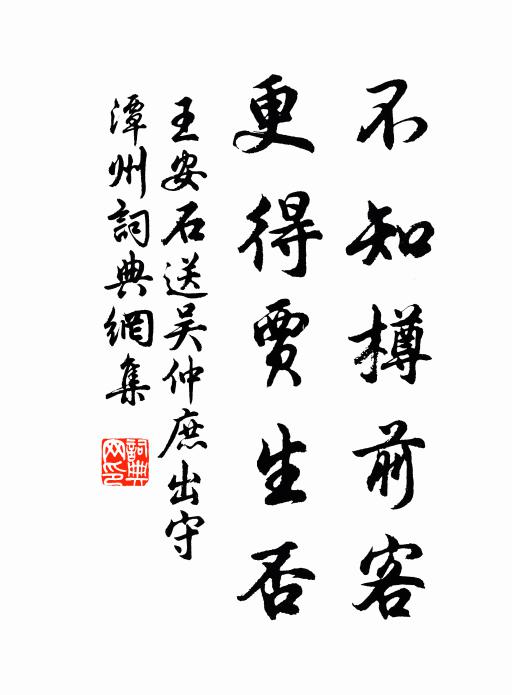 不知樽前客
更得賈生否
王安石送吴仲庶出守
潭州詞典網集
詞典网印